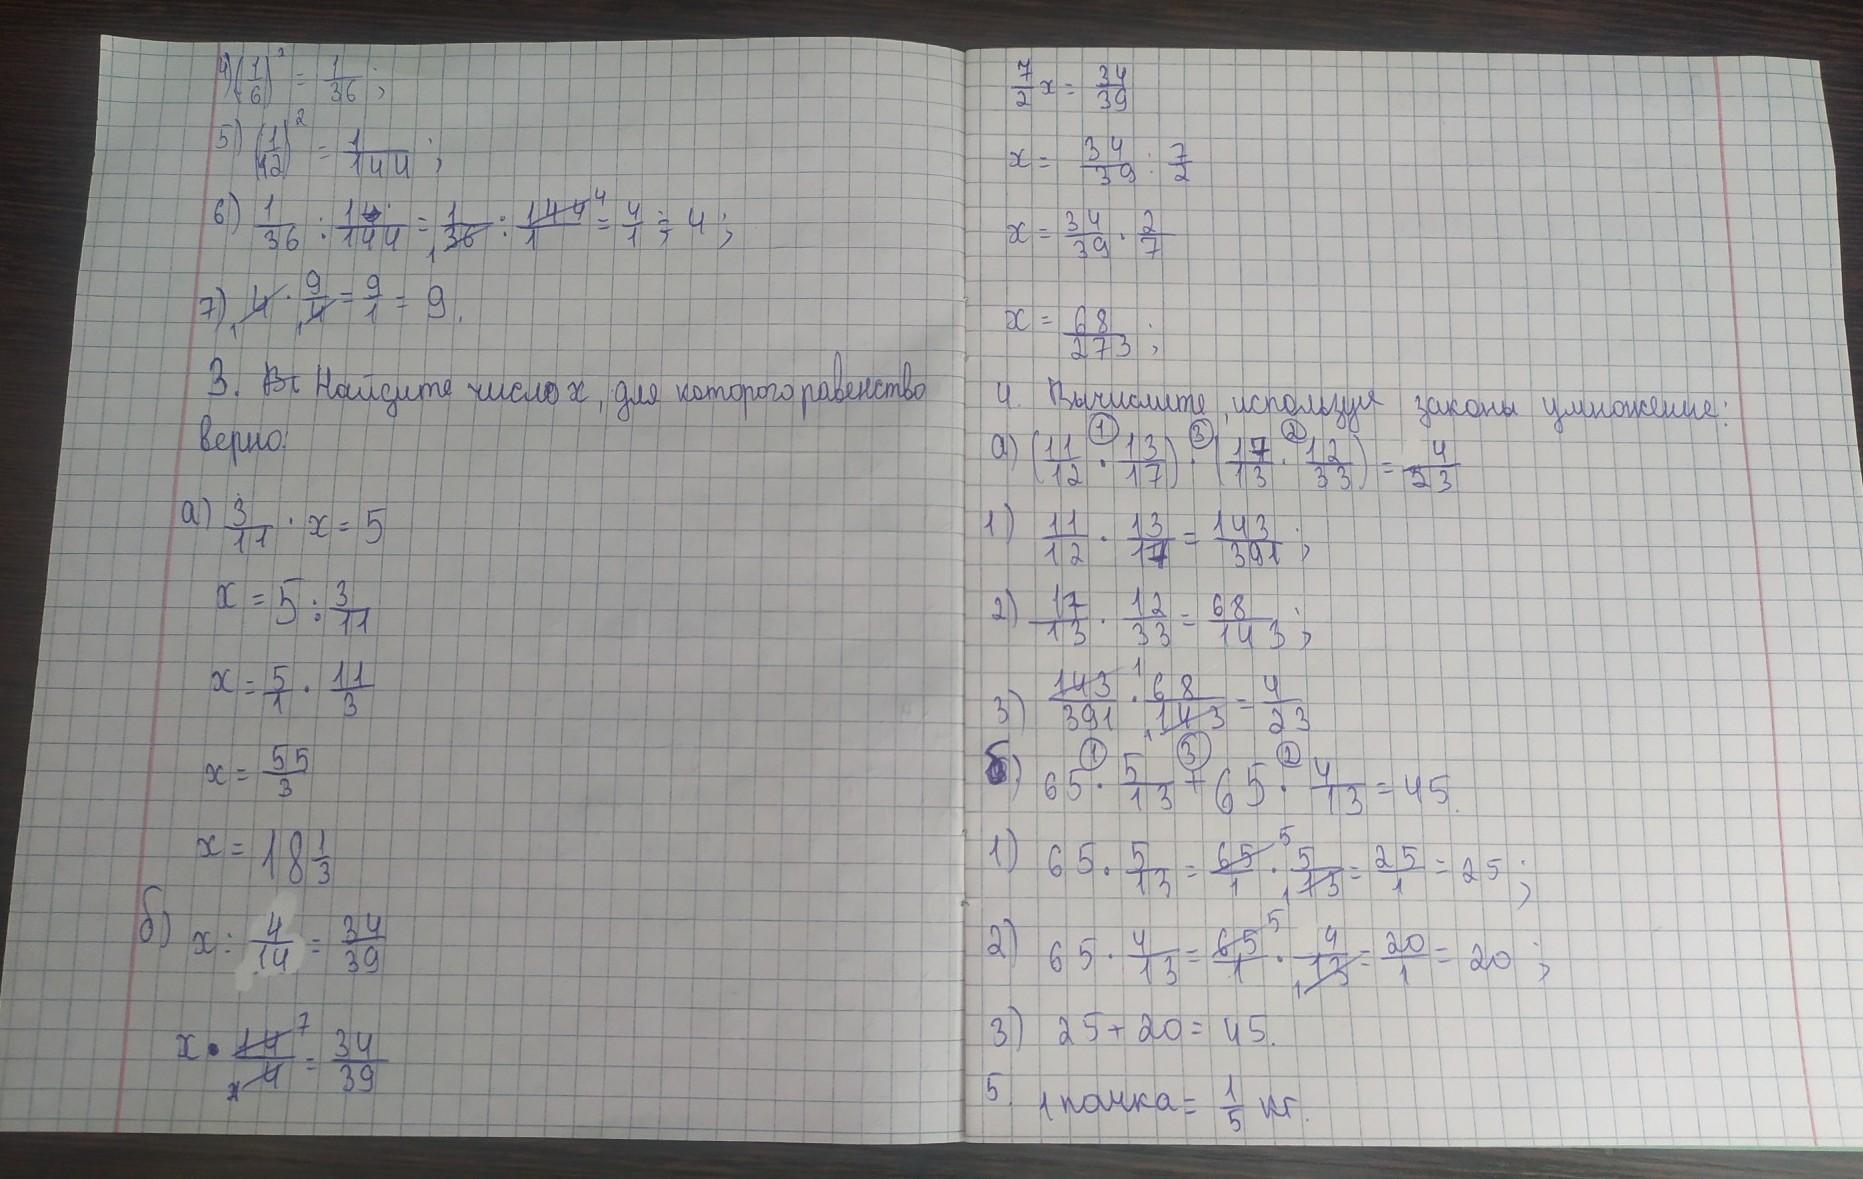 4) (1/6)² = 1/36 ;
5) (1/12)² = 1/144 ;
6) 1/36 : 1/144 = 1/36 · 144/1 = 4/1 = 4 ;
7) 4 · 9/4 = 9/1 = 9.
3. Найдите число х, для которого равенство
верно:
а) 3/11 · x = 5
x = 5 : 3/11
x = 5/1 · 11/3
x = 55/3
x = 18 1/3
б) x : 4/14 = 34/39
x · 14/4 = 34/39
7/2 x = 34/39
x = 34/39 : 7/2
x = 34/39 · 2/7
x = 68/273 ;
4. Вычислите, используя законы умножение:
а) (11/12 · 13/17) · (17/13 · 12/33) = 4/23
1) 11/12 · 13/17 = 143/391 ;
2) 17/13 · 12/33 = 68/143 ;
3) 143/391 · 68/143 = 4/23
б) 65 · 5/13 + 65 · 4/13 = 45.
1) 65 · 5/13 = 65/1 · 5/13 = 25/1 = 25 ;
2) 65 · 4/13 = 65/1 · 4/13 = 20/1 = 20 ;
3) 25 + 20 = 45.
5. 1 пачка = 1/5 кг.